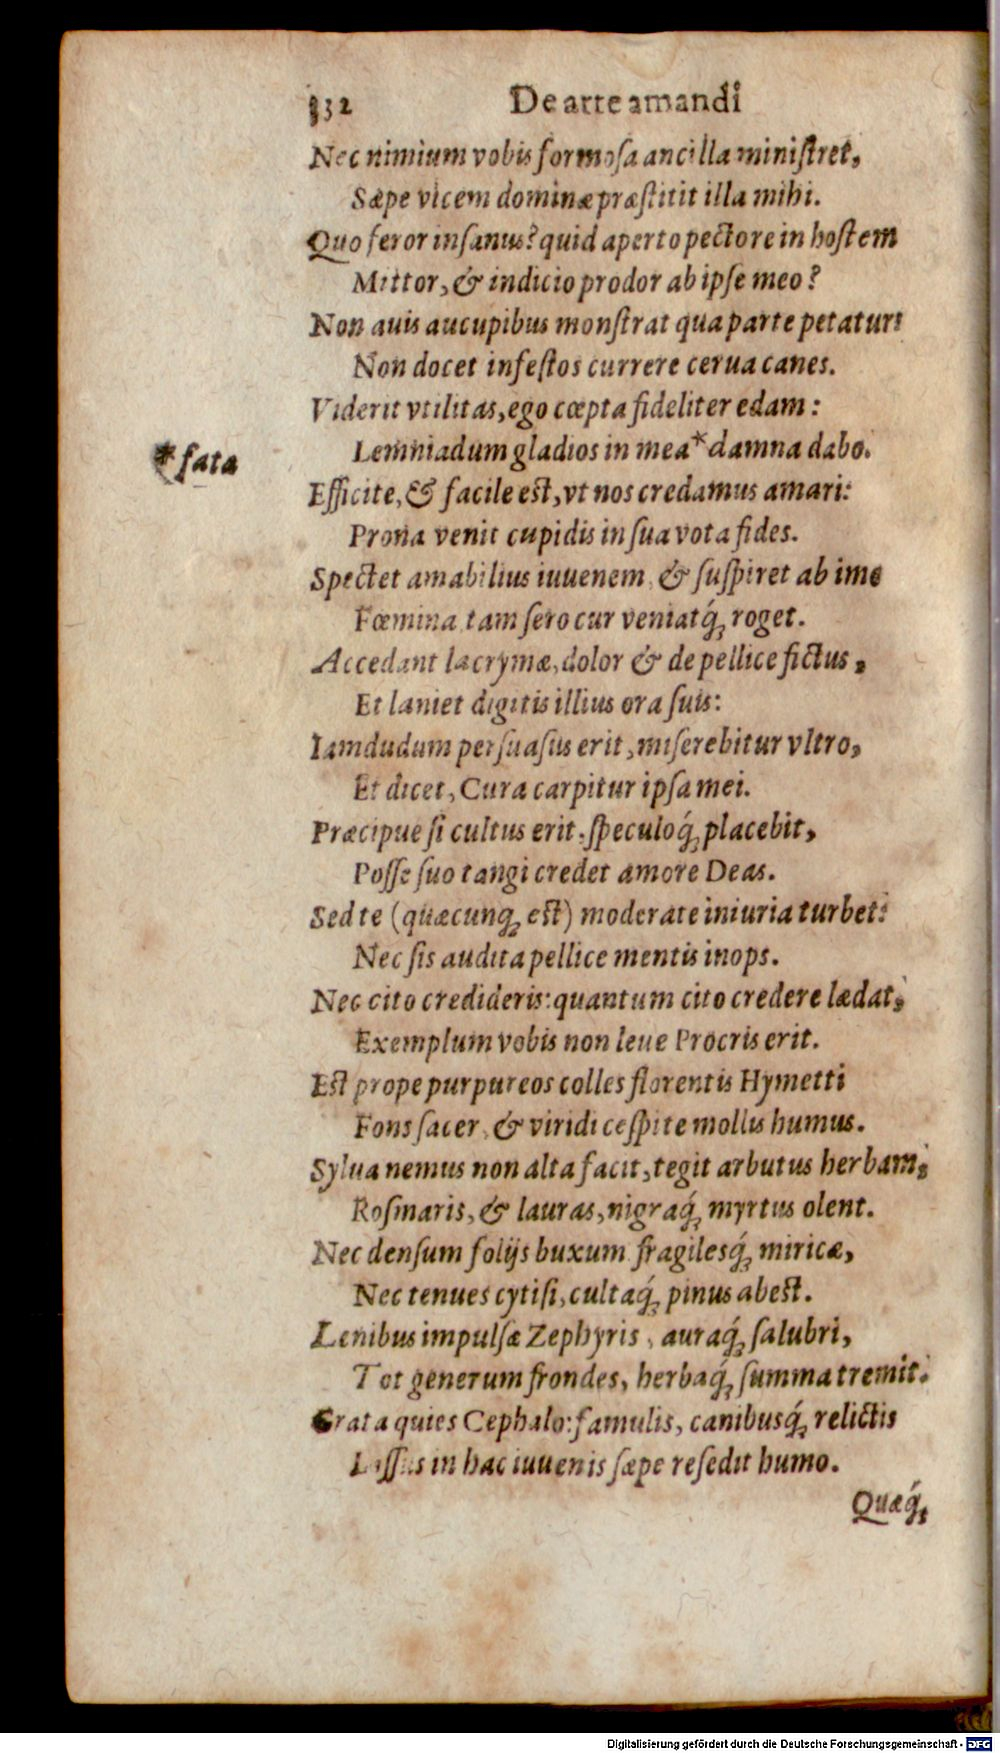 332 De arte amandi
Nec nimium vobis formosa ancilla ministret,
Sæpe vicem dominæ præstitit illa mihi.
Quo feror insanus? quid aperto pectore in hostem
Mittor, & indicio prodor ab ipse meo?
Non auis aucupibus monstrat qua parte petatur:
Non docet infestos currere cerua canes.
Viderit vtilitas, ego cœpta fideliter edam:
Lemniadum gladios in mea* damna dabo.
* fata
Efficite, & facile est, vt nos credamus amari:
Prona venit cupidis in sua vota fides.
Spectet amabilius iuuenem, & suspiret ab imo
Fœmina, tam sero cur veniatq́; roget.
Accedant lacrymæ, dolor & de pellice fictus,
Et laniet digitis illius ora suis:
Iamdudum persuasus erit, miserebitur vltro,
Et dicet, Cura carpitur ipsa mei.
Præcipue si cultus erit, speculoq́; placebit,
Posse suo tangi credet amore Deas.
Sed te (quæcunq; est) moderate iniuria turbet:
Nec sis audita pellice mentis inops.
Nec cito credideris: quantum cito credere lædat,
Exemplum vobis non leue Procris erit.
Est prope purpureos colles florentis Hymetti
Fons sacer, & viridi cespite mollis humus.
Sylua nemus non alta facit, tegit arbutus herbam;
Rosmaris, & lauras, nigraq́; myrtus olent.
Nec densum folijs buxum fragilesq́; miricæ,
Nec tenues cytisi, cultaq́; pinus abest.
Lenibus impulsæ Zephyris, auraq́; salubri,
Tot generum frondes, herbaq́; summa tremit.
Grata quies Cephalo: famulis, canibusq́; relictis
Lassus in hac iuuenis sæpe resedit humo.
Quæq́;
Digitalisierung gefördert durch die Deutsche Forschungsgemeinschaft - DFG